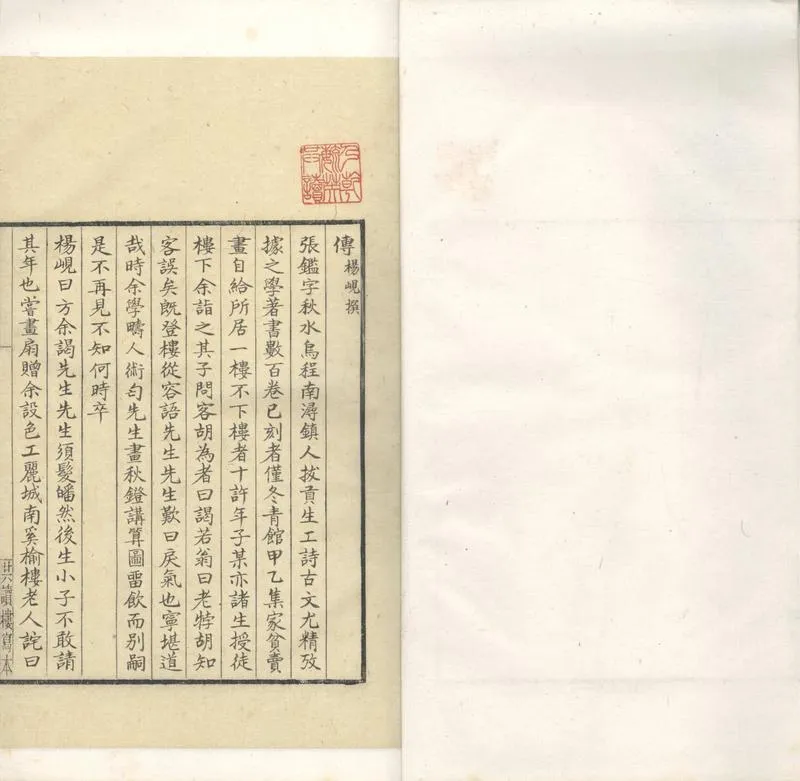 傳 楊峴撰
張鑑字秋水烏程南潯鎮人拔貢生工詩古文尤精攷
據之學著書數百卷已刻者僅冬青館甲乙集家貧賣
畫自給所居一樓不下樓者十許年子某亦諸生授徒
樓下余詣之其子問客胡為者曰謁若翁曰老悖胡知
客誤矣既登樓從容語先生先生歎曰戾氣也寧堪道
哉時余學疇人術匄先生畫秋鐙講算圖畱飲而別嗣
是不再見不知何時卒
楊峴曰方余謁先生先生須髮皤然後生小子不敢請
其年也嘗畫扇贈余設色工麗城南奚榆樓老人詫曰
讀樓寫本